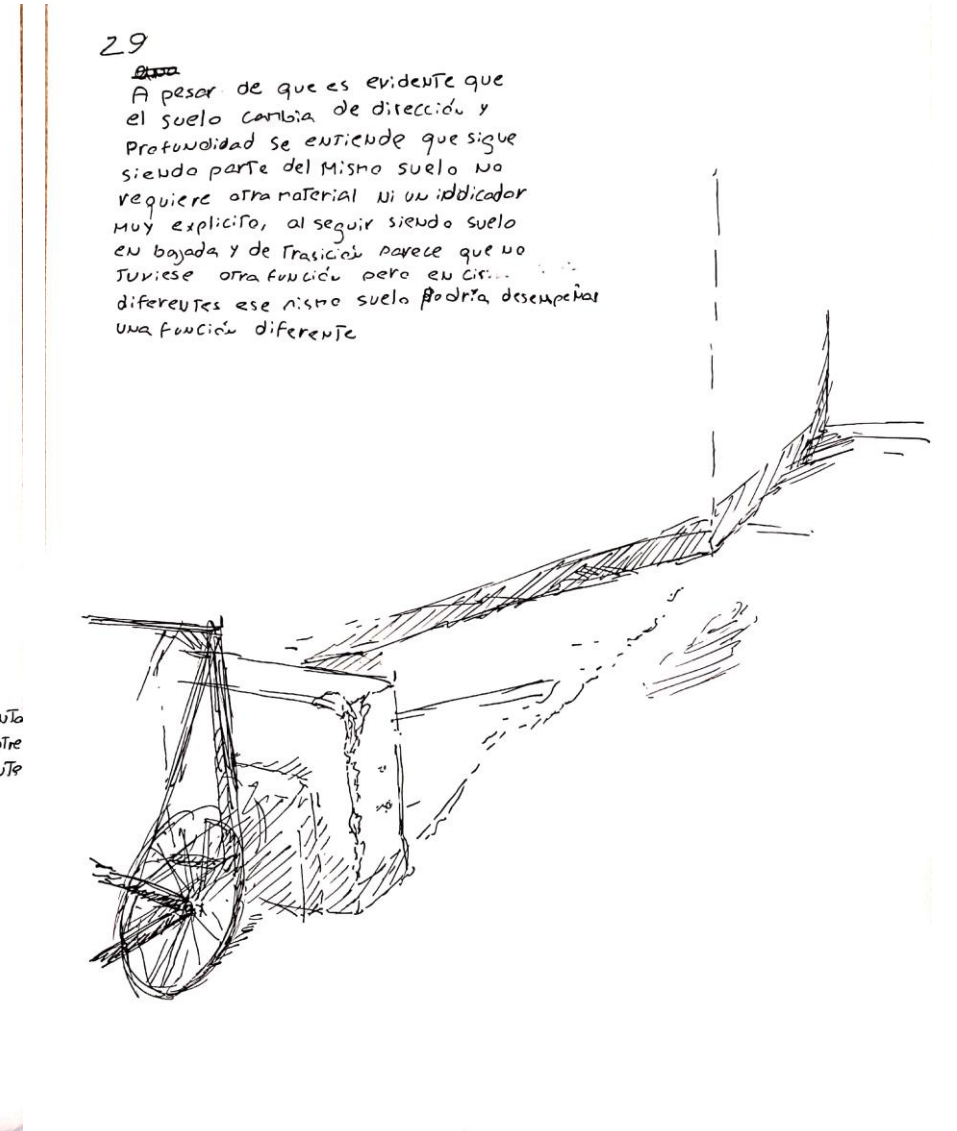 29
A pesar de que es evidente que
el suelo cambia de dirección y
Profundidad se entiende que sigue
siendo parte del Mismo suelo No
requiere otra material Ni un iddicador
Muy explicito, al seguir siendo suelo
en bajada y de Trasición parece que no
Tuviese otra función pero en cir...
diferentes ese mismo suelo Podría desempeñar
una función diferente